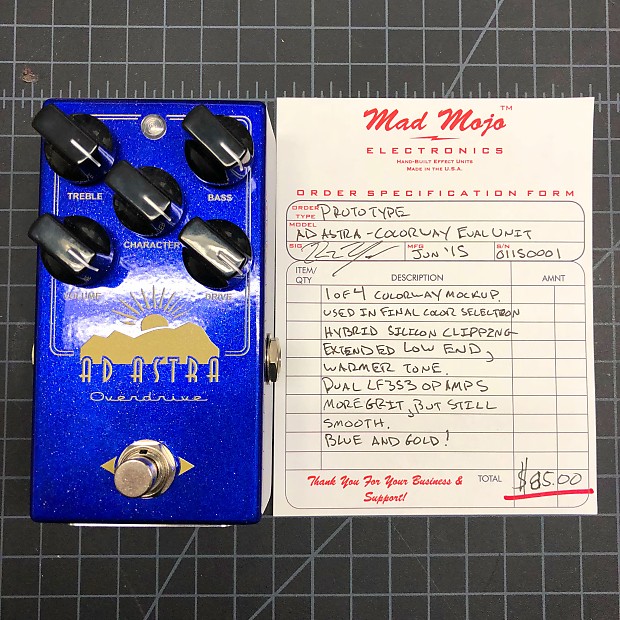 TREBLE
BASS
CHARACTER
VOLUME
DRIVE
AD ASTRA
Overdrive
Mad Mojo™
ELECTRONICS
HAND-BUILT EFFECT UNITS
MADE IN THE U.S.A.
ORDER SPECIFICATION FORM
ORDER TYPE PROTOTYPE
MODEL AD ASTRA - COLORWAY EVAL UNIT
SIG MFG JUN '15 S/N 01150001
ITEM/QTY DESCRIPTION AMNT
1 OF 4 COLORWAY MOCKUP.
USED IN FINAL COLOR SELECTION
HYBRID SILICON CLIPPING
EXTENDED LOW END,
WARMER TONE.
DUAL LF353 OP AMPS
MORE GRIT, BUT STILL
SMOOTH.
BLUE AND GOLD!
Thank You For Your Business &
Support!
TOTAL $85.00